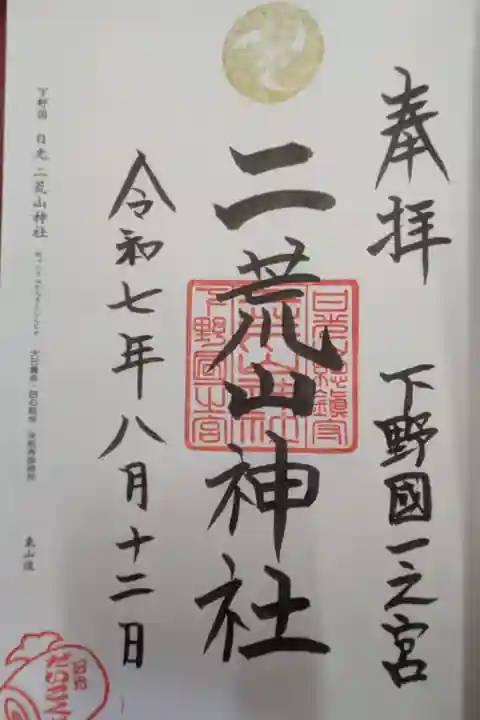 奉拝 下野國一之宮
二荒山神社
日光総鎮守
二荒山神社
下野国一之宮
令和七年八月十二日
下野国 日光 二荒山神社
東山道